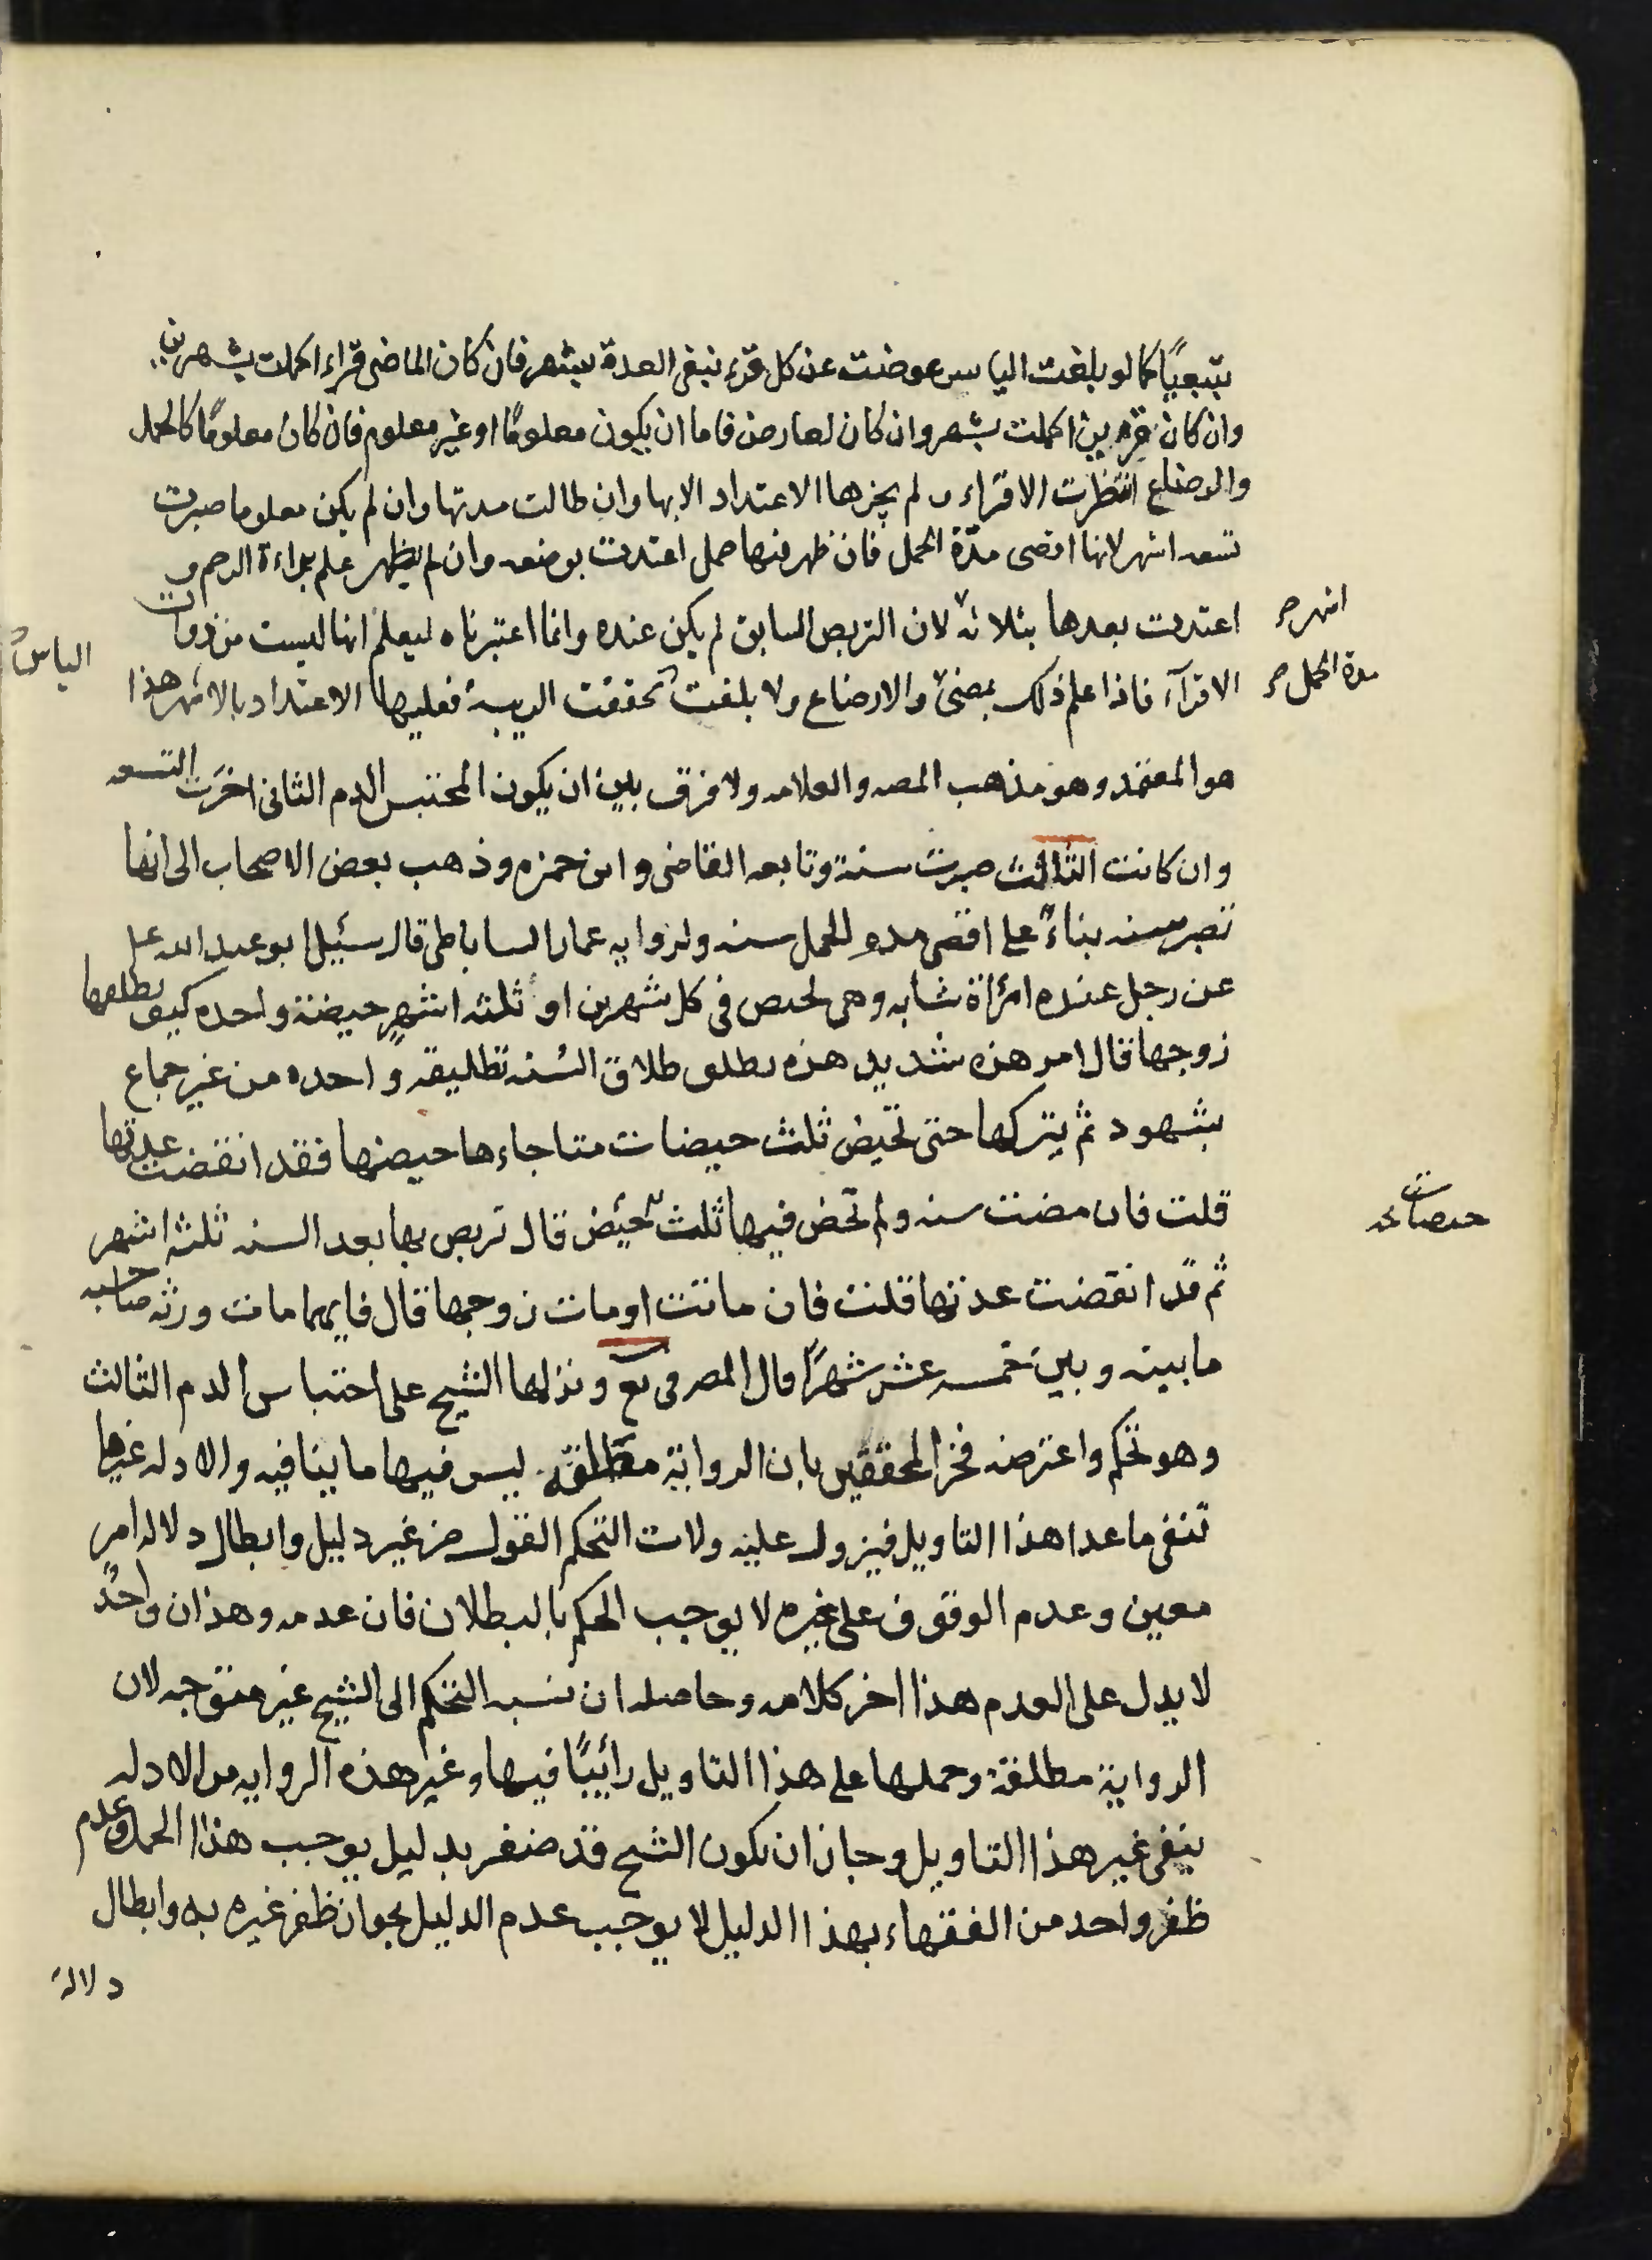 تبعيًا كما لو بلغت الياس عوضت عن كل قرء نبغى العدة بشهر فان كان الماضى قراء اكملت بشهرين
وان كان قرءين اكملت بشهر وان كان لعارض فاما ان يكون معلومًا او غير معلوم فان كان معلومًا كالحمل
والرضاع انتظرت الاقراء و لم يجزها الاعتداد الا بها وان طالت مدتها وان لم يكن معلوما صبرت
تسعه اشهر لانها اقصى مدّة الحمل فان ظهر فيها حمل اعتدت بوضعه وان لم يظهر علم براءة الرحم و
اعتدت بعدها بثلاثه لان التربص السابق لم يكن عنده وانما اعتبرناه ليعلم انها ليست من ذوات
اشهر صح
الاقرآء فاذا علم ذلك بمضى والارضاع ولا بلغت تحققت الريبة فعليها الاعتداد بالاشهر هذا
مدة الحمل صح
الياس
هو المعتمد وهو مذهب المصه والعلامه ولا فرق بين ان يكون المحتبس الدم الثانى اخرت التسعه
وان كانت الثالث صبرت سنة وتابعه القاضى وابن حمزه وذهب بعض الاصحاب الى انها
تصبر سنه بناءً على اقصى مده الحمل سنه ولروايه عمار الساباطى قال سئيل ابو عبد الله عل
عن رجل عنده امرأة شابه وهى تحيص فى كل شهرين او ثلثه اشهرٍ حيضة واحده كيف يطلعها
زوجها قال امر هذه شديد هذه يطلق طلاق السُنه تطليقه واحده من غير جماع
بشهود ثم يتركها حتى تحيض ثلث حيضات متا جاءها حيضها فقد انقضت عدتها
قلت فان مضت سنه ولم تحض فيها ثلث حيَض قال تربص بها بعد السنه ثلثه اشهر
حيصات خه
ثم قد انقضت عدتها قلت فان ماتت او مات زوجها قال فايهما مات ورثه صاحبه
ما بينه وبين خمسه عشر شهرًا قال المصر فى يع ونزلها الشيح على احتباس الدم الثالث
وهو تحكم واعترضه فخر المحققين بان الرواية مطلقه ليس فيها ما ينافيه والادله غيرها
تنفى ما عدا هذا التاويل فيزول عليه ولات التحكم القول من غير دليل وابطال دلاله امرٍ
معين وعدم الوقوف على غيره لا يوجب الحكم بالبطلان فان عدمه وهذان واحد
لا يدل على العدم هذا اخر كلامه وحاصله ان نسبه التحكم الى الشيح غير متوجه لان
الرواية مطلقة وحملها على هذا التاويل رائيبًا فيها وغير هذه الروايه من الادله
ينفى غير هذا التاويل وجاز ان يكون الشيح قد ضفر بدليل يوجب هذا الحمل وعدم
ظفر واحد من الفقهاء بهذا الدليل لا يوجب عدم الدليل بجواز ظفر غيره به وابطال
دلالة